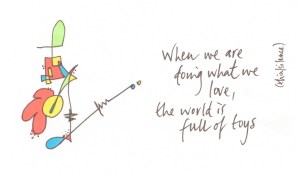 When we are
doing what we
love,
the world is
full of toys
(thinksilence)